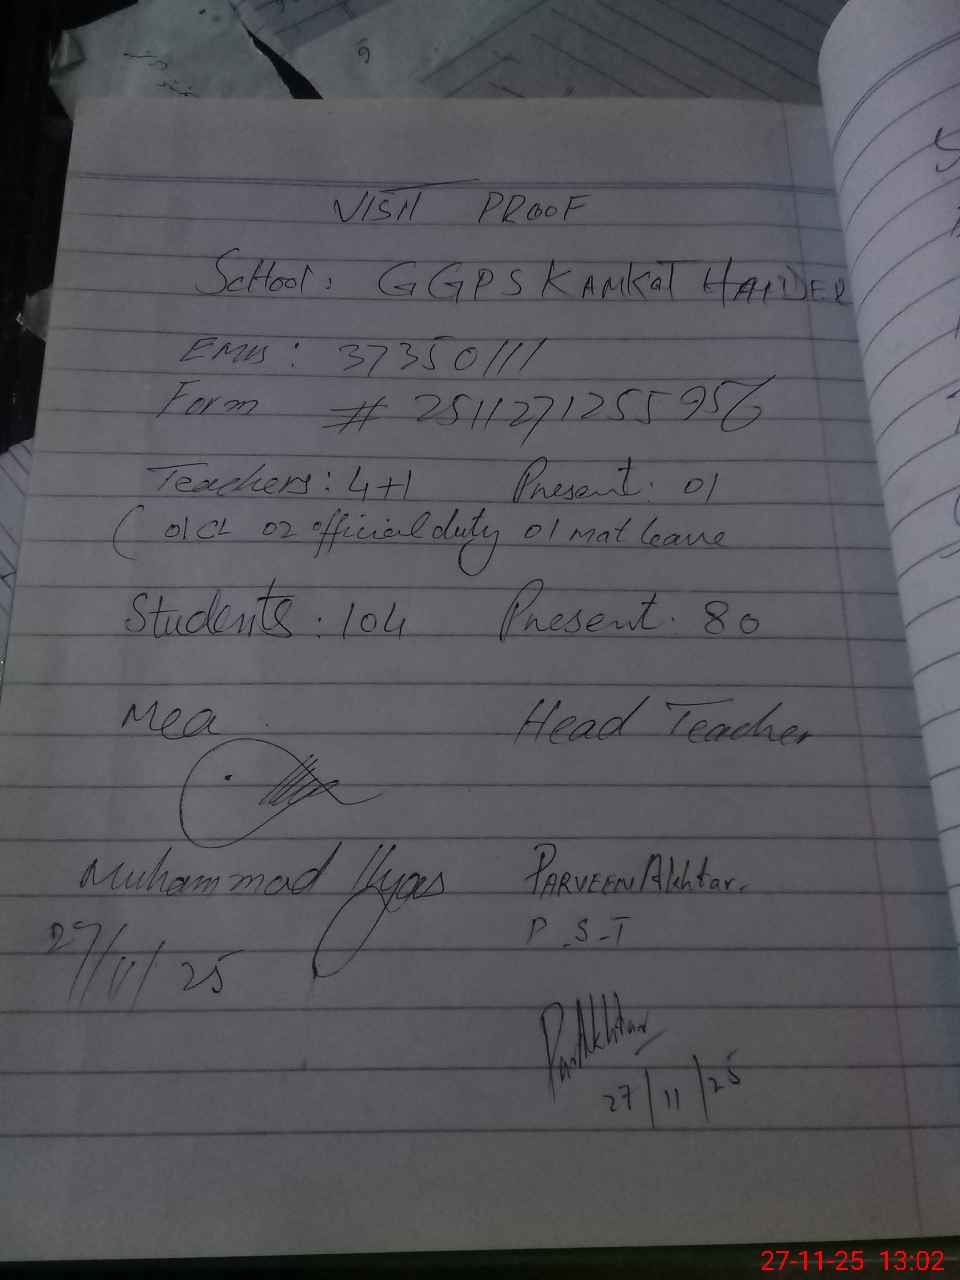 VISIT PROOF
School: GGPS KAMKOT HAIDER
Emis: 37350111
Form # 2511271255956
Teachers: 4+1 Present: 01
( 01 CL 02 official duty 01 mat leave
Students: 104 Present: 80
Mea Head Teacher
Muhammad Ilyas PARVEEN Akhtar.
P.S.T
27/11/25
ParAkhtar
27/11/25
27-11-25 13:02